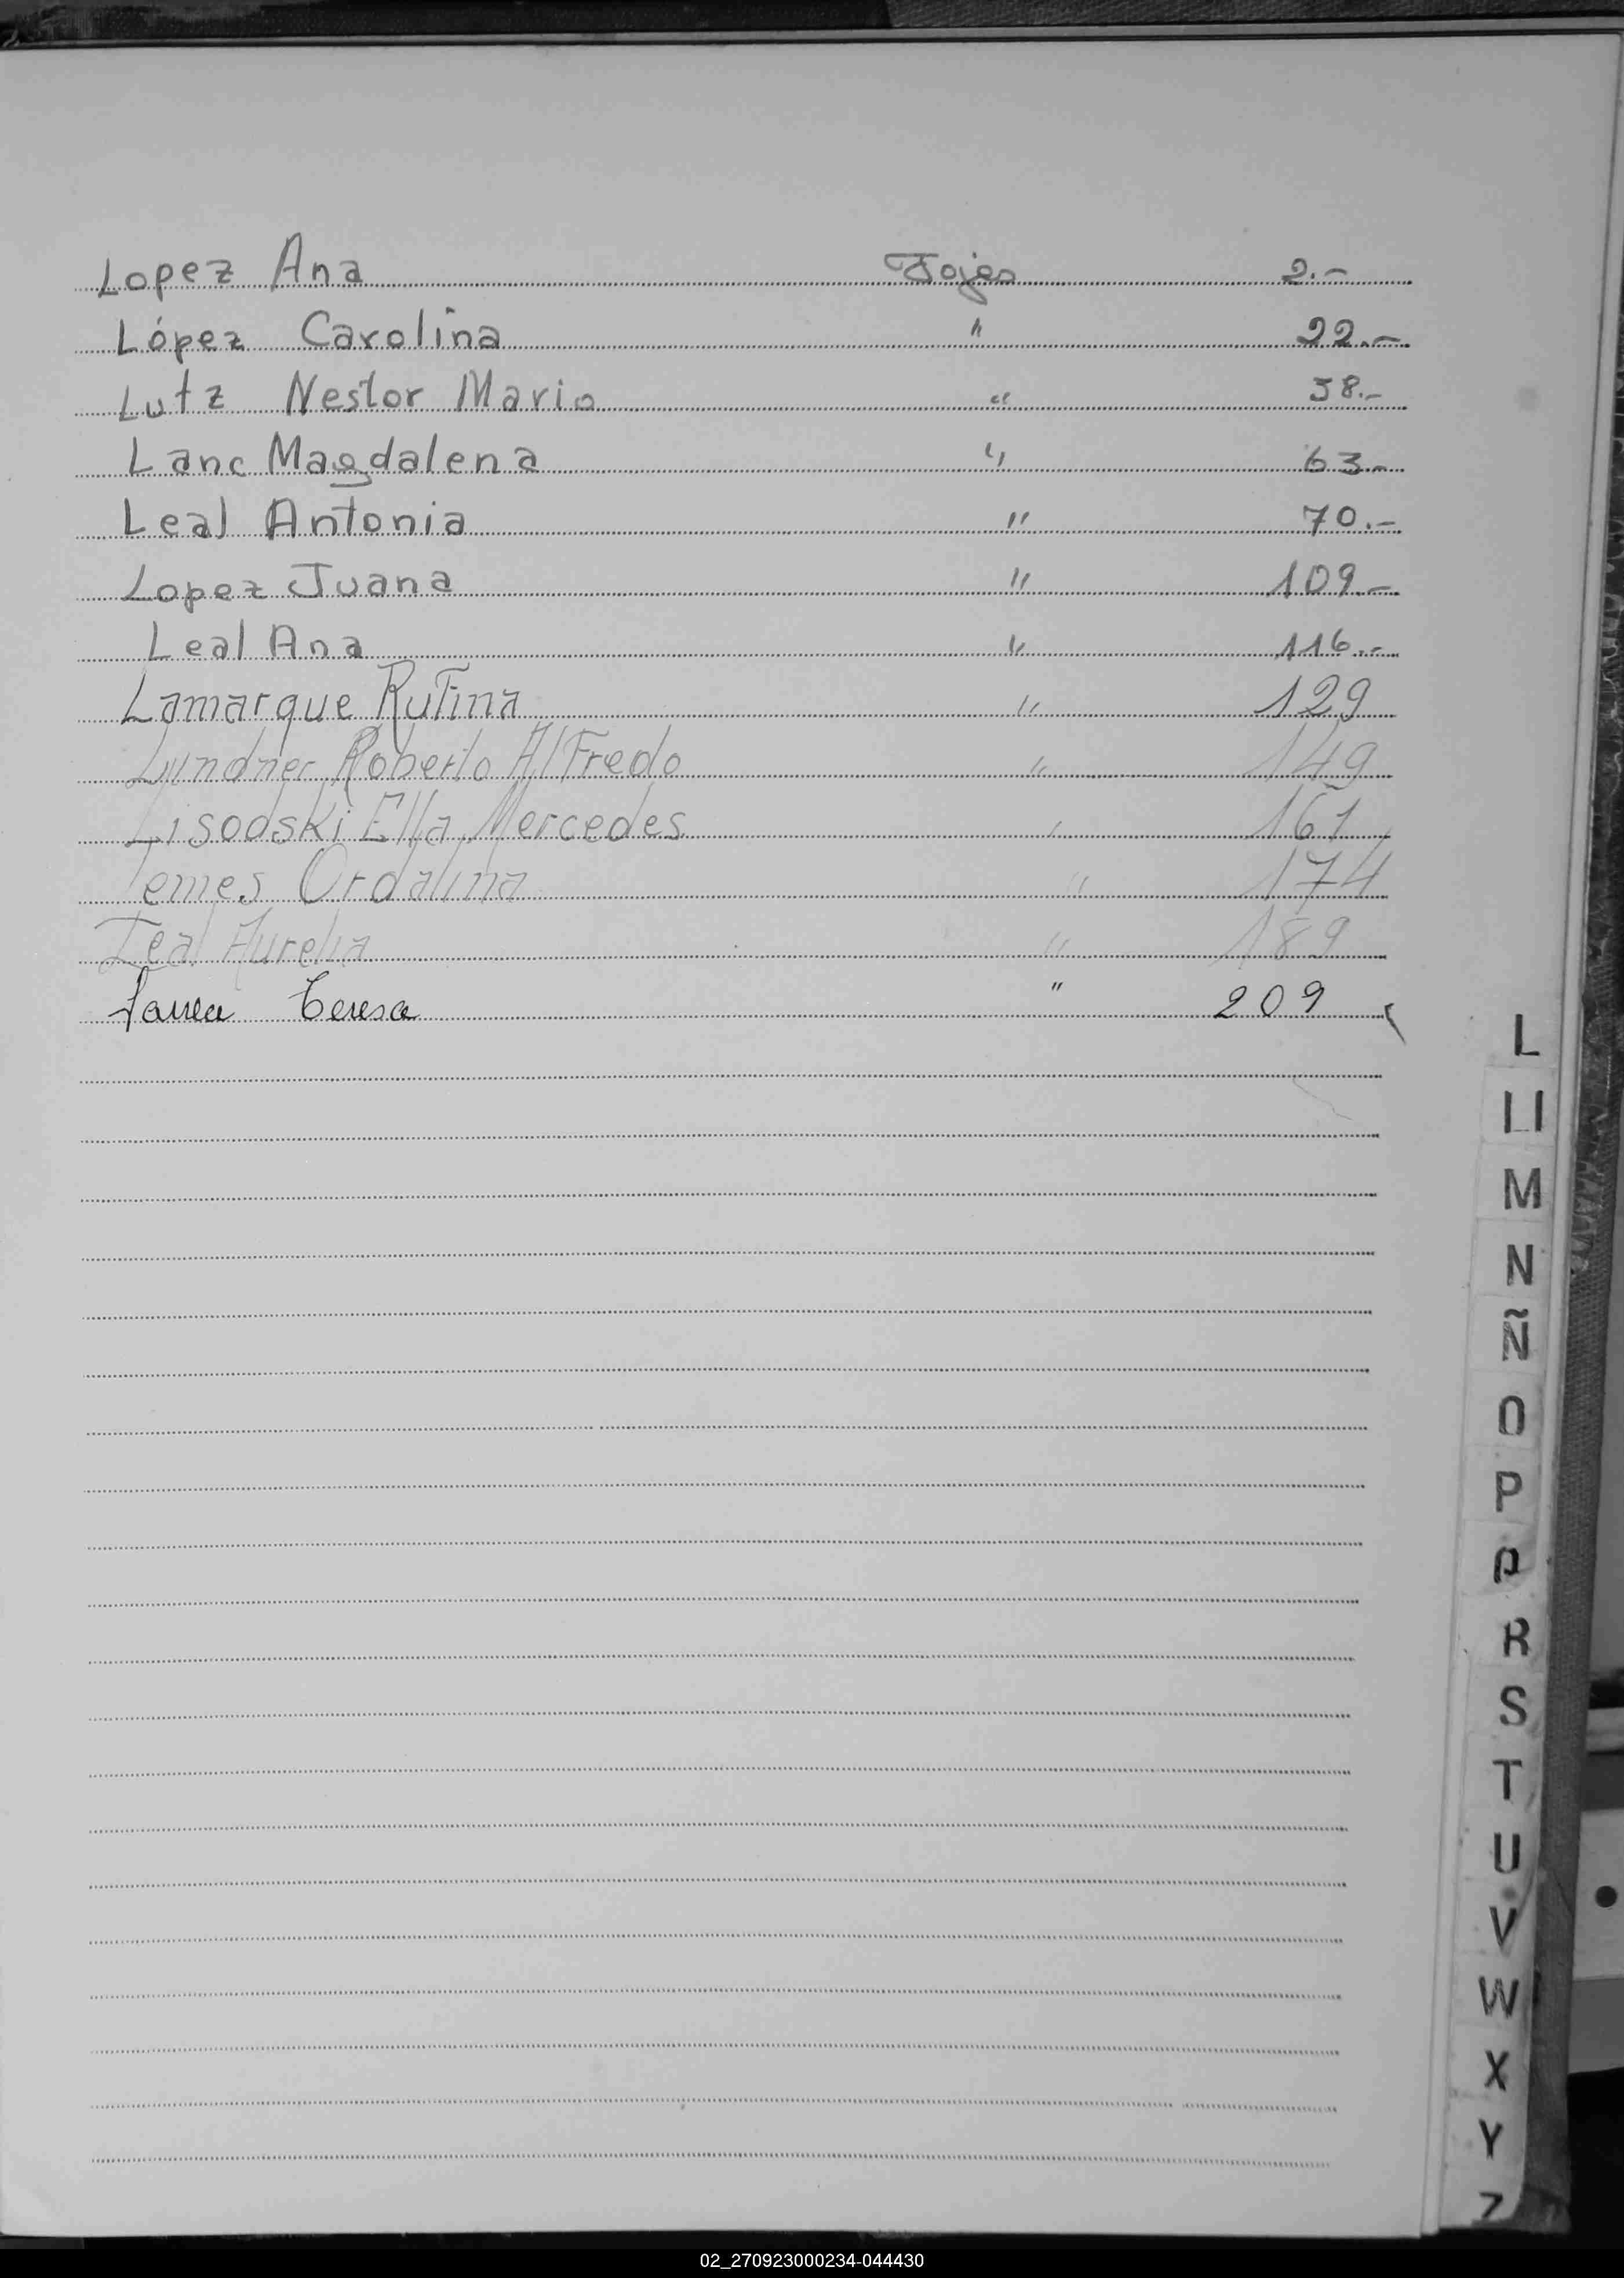 Lopez Ana Fojas 2.-
López Carolina " 22.-
Lutz Nestor Mario " 38.-
Lanc Magdalena " 63.-
Leal Antonia " 70.-
Lopez Juana " 109.-
Leal Ana " 116.-
Lamarque Rufina " 129
Lyndner Roberto Alfredo " 149
Lisodski Ella Mercedes " 161
Lemes Ordalina " 174
Leal Aurelia " 189
Teresa " 209
L
Ll
M
N
Ñ
O
P
Q
R
S
T
U
V
W
X
Y
Z
02_270923000234-044430